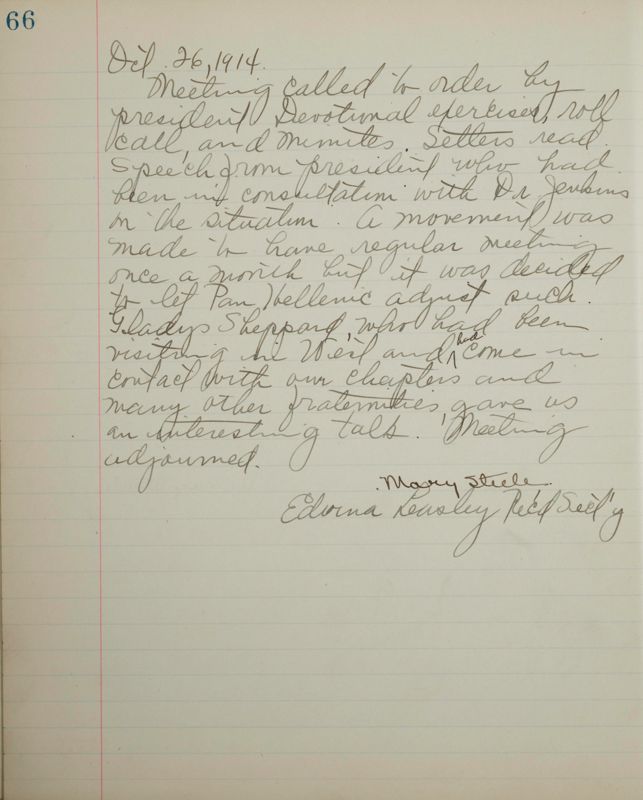 66
Oct. 26, 1914.
Meeting called to order by
president. Devotional exercises, roll
call, and minutes. Letters read.
Speech from president who had
been in consultation with Dr Jenkins
on the situation. A movement was
made to have regular meeting
once a month but it was decided
to let Pan Hellenic adjust such.
Gladys Sheppard, who had been
visiting in West and had come in
contact with our chapters and
many other fraternities gave us
an interesting talk. Meeting
adjourned.
Mary Steele
Edwina Rec'd Sect'y